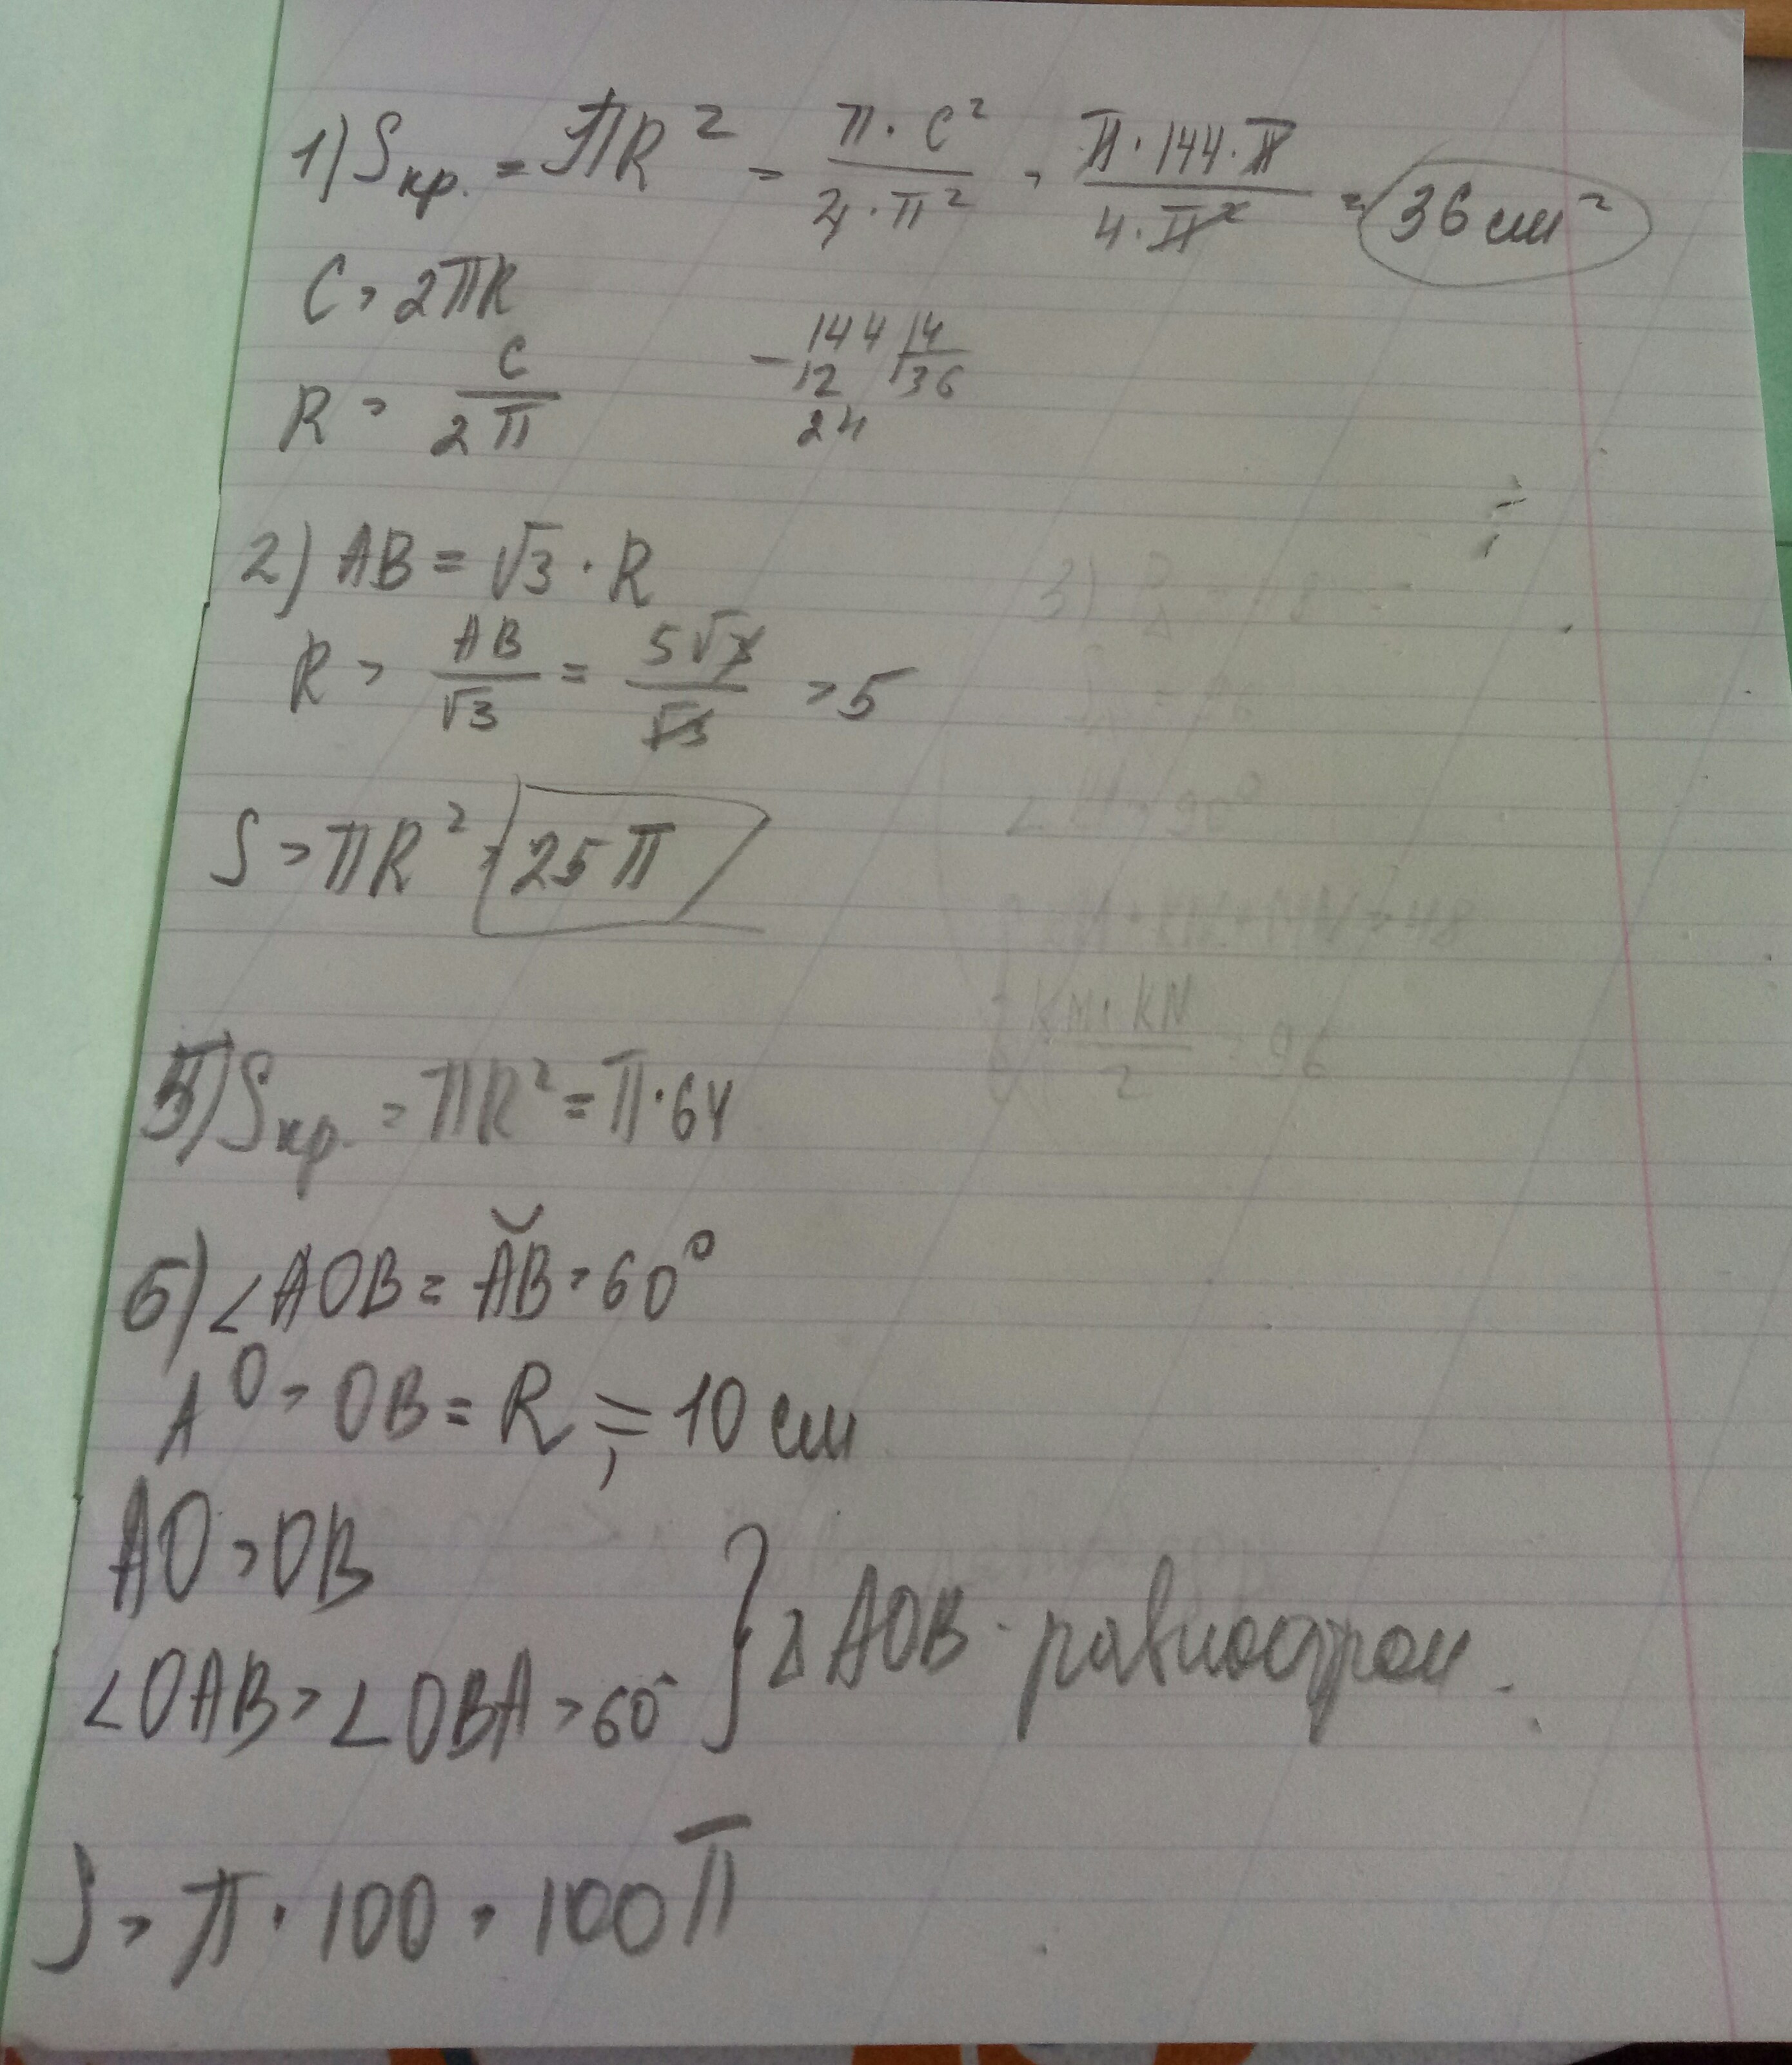 1) Sкр. = πR² = π · C² / 4 · π² = π · 144 · π / 4 · π² = 36 см²
C = 2πR
R = C / 2π
144 | 4
- 12 | 36
24
2) AB = √3 · R
R = AB / √3 = 5√3 / √3 = 5
S = πR² = 25π
3)
∠M = 90°
KM + KN + MN = 48
KM · KN / 2 = 96
5) Sкр. = πR² = π · 64
6) ∠AOB = ◡AB = 60°
AO = OB = R = 10 см
AO = OB
∠OAB = ∠OBA = 60° } Δ AOB - равнострон.
S = π · 100 = 100π